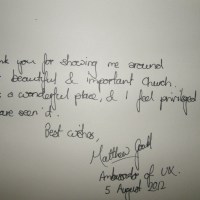 nk you for showing me around
beautiful & important Church.
a wonderful place, & I feel privileged
have seen it.
Best wishes,
Matthew
Ambassador of UK.
5 August 2012